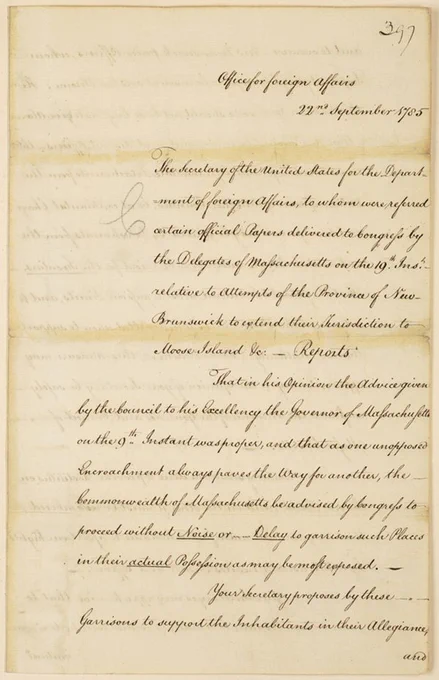 397
Office for foreign Affairs
22nd September 1785
The Secretary of the United States for the Depart-
ment of foreign Affairs, to whom were referred
certain official Papers delivered to Congress by
the Delegates of Massachusetts on the 19th Inst.
relative to Attempts of the Province of New-
Brunswick to extend their Jurisdiction to
Moose Island &c: — Reports
That in his Opinion the Advice given
by the Council to his Excellency the Governor of Massachusetts
on the 9th Instant was proper, and that as one unopposed
Encroachment always paves the Way for another, the —
Commonwealth of Massachusetts be advised by Congress to
proceed without Noise or —— Delay to garrison such Places
in their actual Possession as may be most exposed. —
Your Secretary proposes by these — . —
Garrisons to support the Inhabitants in their Allegiance,
and